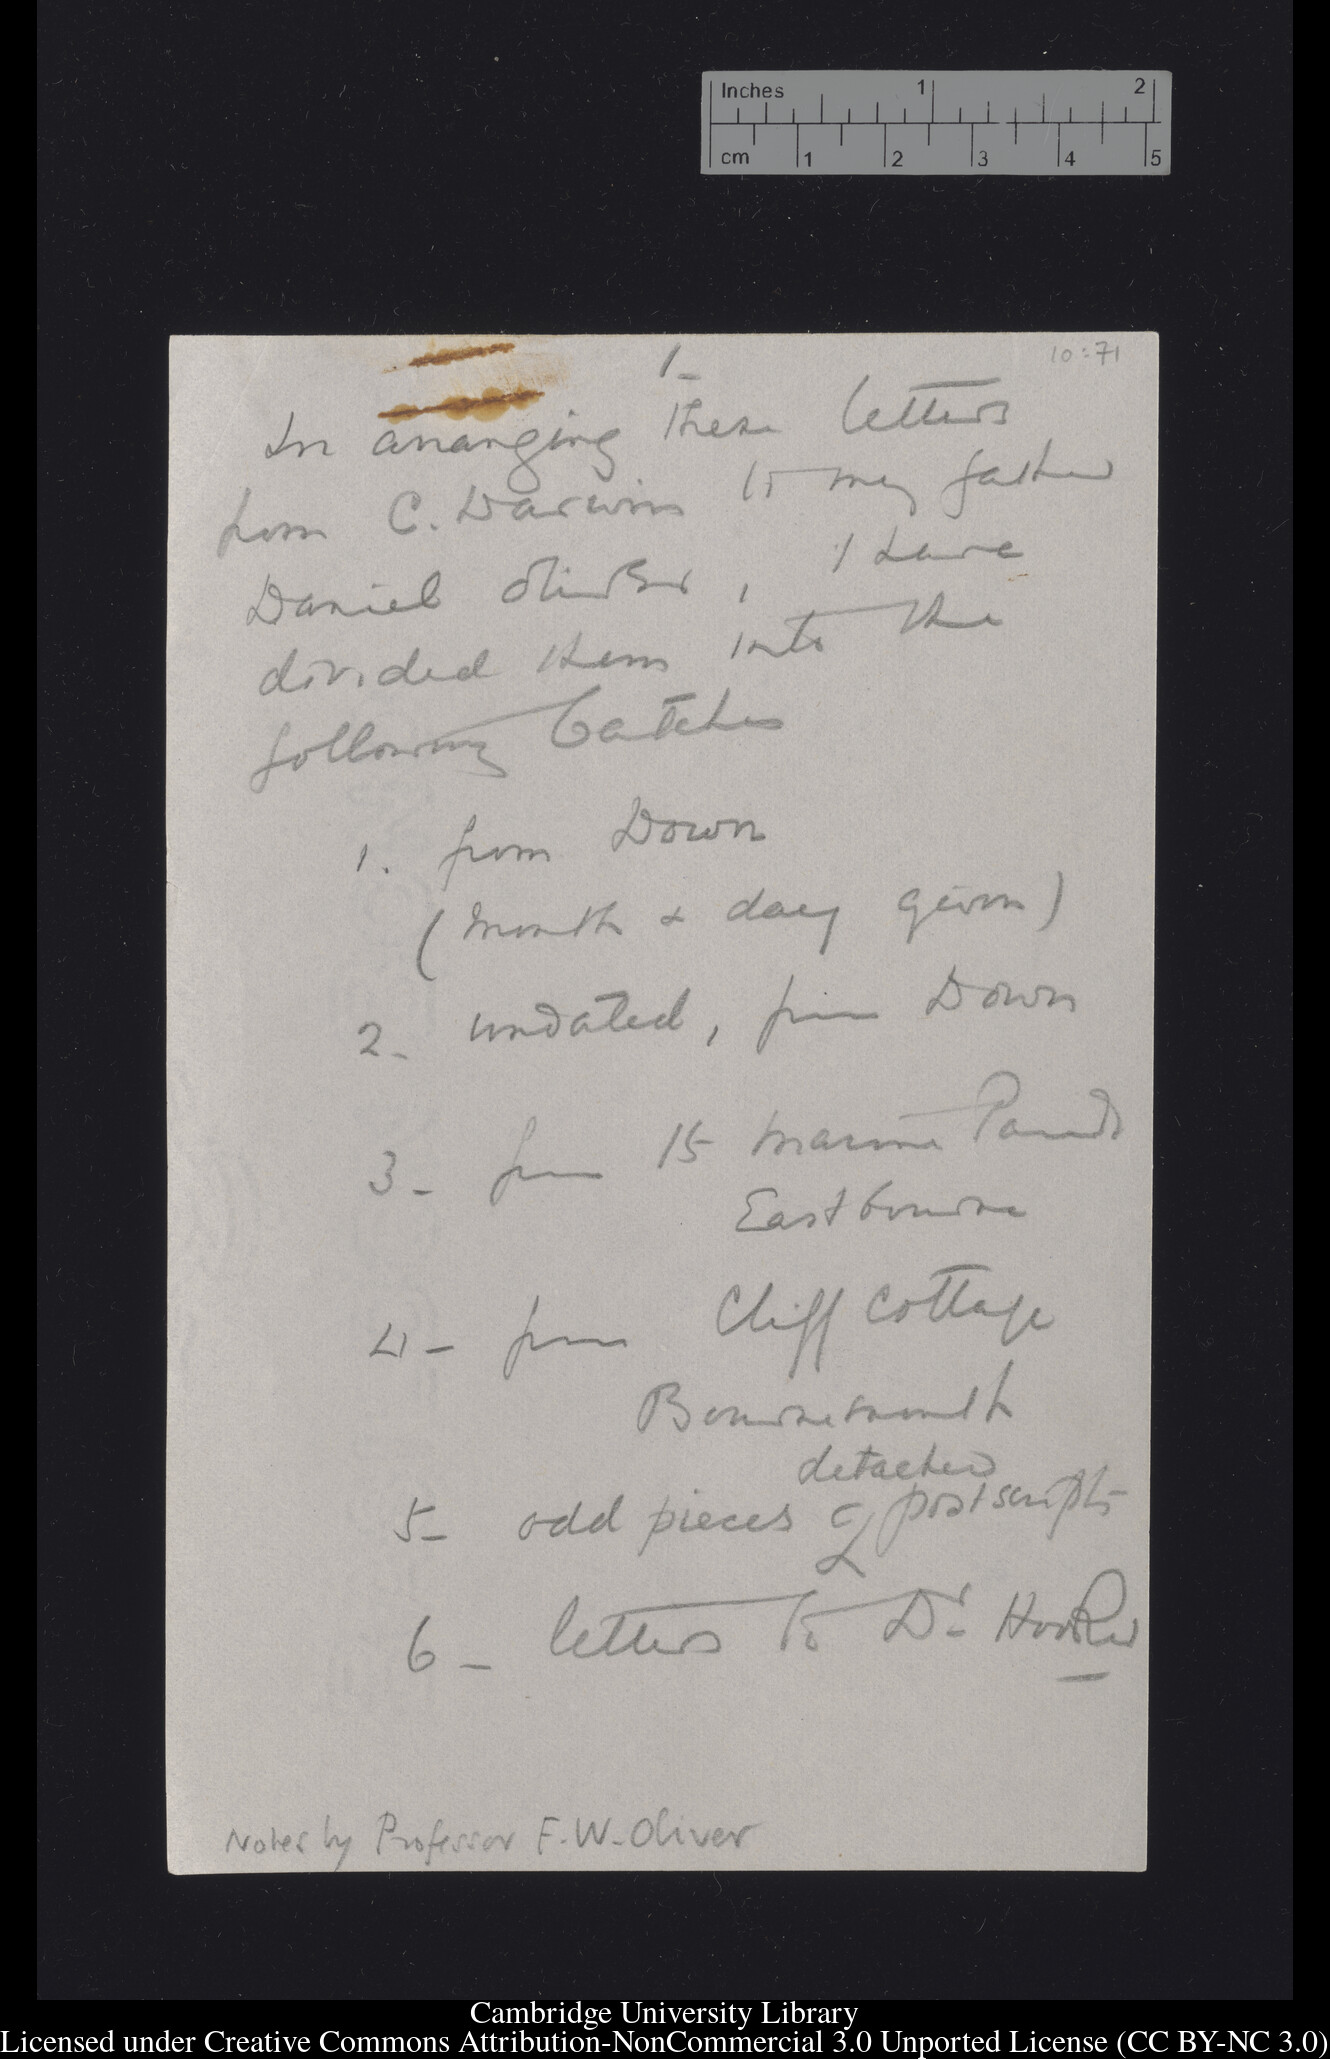 Inches 1 2
cm 1 2 3 4 5
10:71
1-
In arranging these letters
from C. Darwin to my father
Daniel Oliver, I have
divided them into the
following batches
1. from Down
(month & day given)
2- undated, from Down
3- from 15 Marine Parade
Eastbourne
4- from Cliff Cottage
Bournemouth
detached
5- odd pieces & postscripts
6- letters to Dr. Hooker
Notes by Professor F.W. Oliver
Cambridge University Library
Licensed under Creative Commons Attribution-NonCommercial 3.0 Unported License (CC BY-NC 3.0)